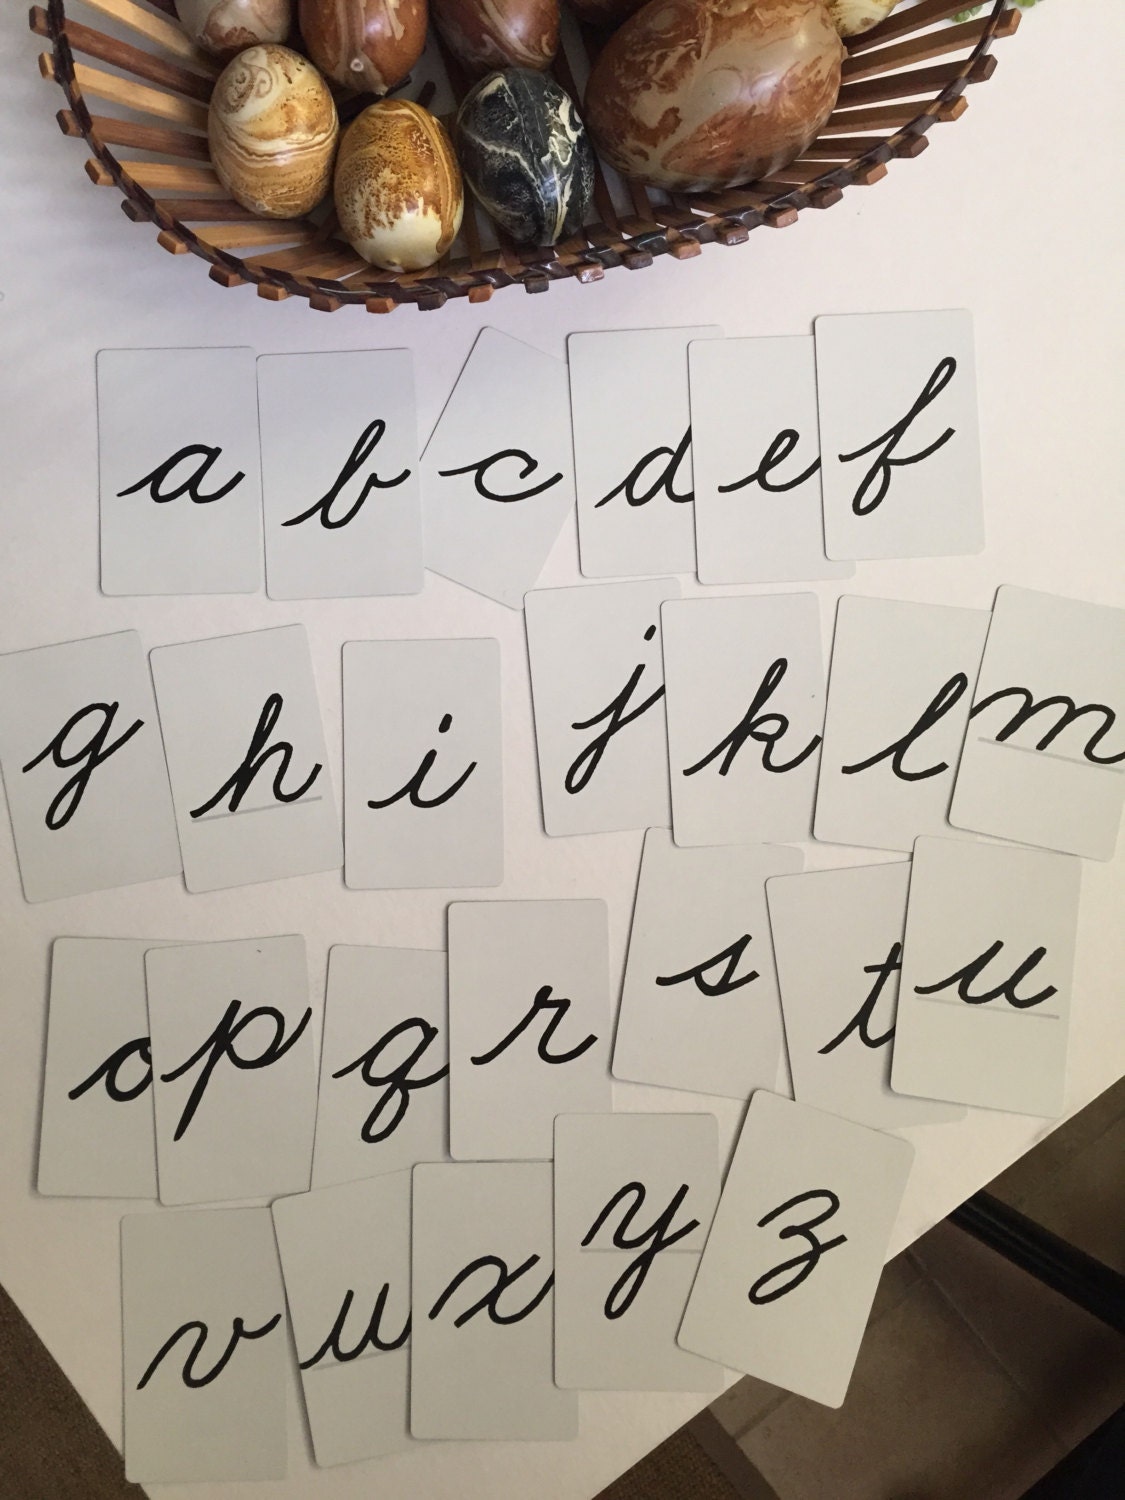 a b c d e f
g h i j k l m
o p q r s t u
v w x y z